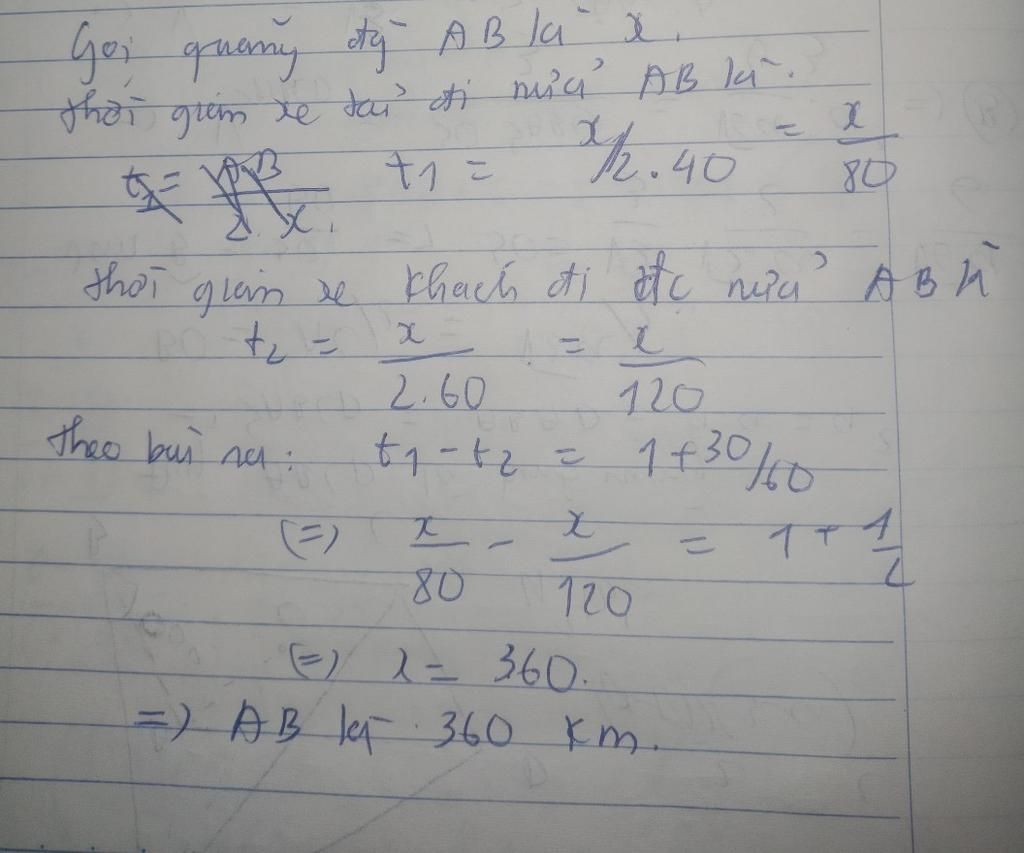 Gọi quãng đg AB là x.
thời gian xe tải đi nửa AB là.
t1 = x/2.40 = x/80
thời gian xe khách đi đc nửa AB là
t2 = x/2.60 = x/120
theo bài ra: t1 - t2 = 1+30/60
(=) x/80 - x/120 = 1 + 1/2
(=) x = 360.
=) AB là 360 km.